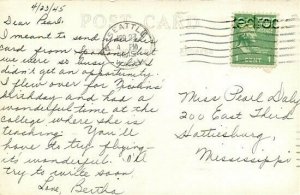 4/23/45
Dear Pearl:
I meant to send you a
card from Spokane but
we were so busy that I
didn't get an opportunity.
I flew over for
birthday and had a
wonderful time at the
college where she is
teaching. You'll
have to try flying -
it's wonderful. I'll
try to write soon.
Love, Bertha
POST CARD
SEATTLE
4 PM
1 CENT 1
Miss Pearl Daly
200 East Third
Hattiesburg
Mississippi